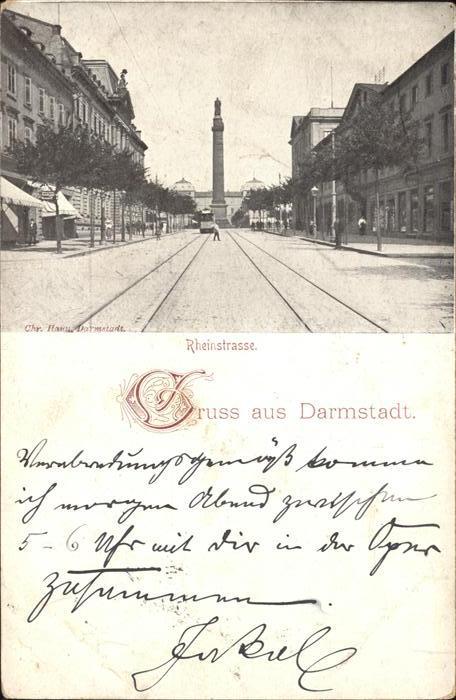 Chr. Haun, Darmstadt.
Rheinstrasse.
Gruss aus Darmstadt.
Verabredungsgemäß komme
ich morgen Abend zwischen
5-6 Uhr mit dir in der Oper
zusammen.